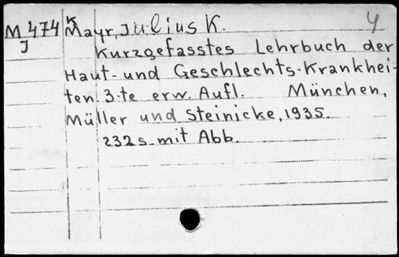 M 474 K Mayr, Julius K. 4
J
Kurzgefasstes Lehrbuch der
Haut- und Geschlechts-Krankhei-
ten. 3-te erw. Aufl. München,
Müller und Steinicke, 1935.
232s. mit Abb.